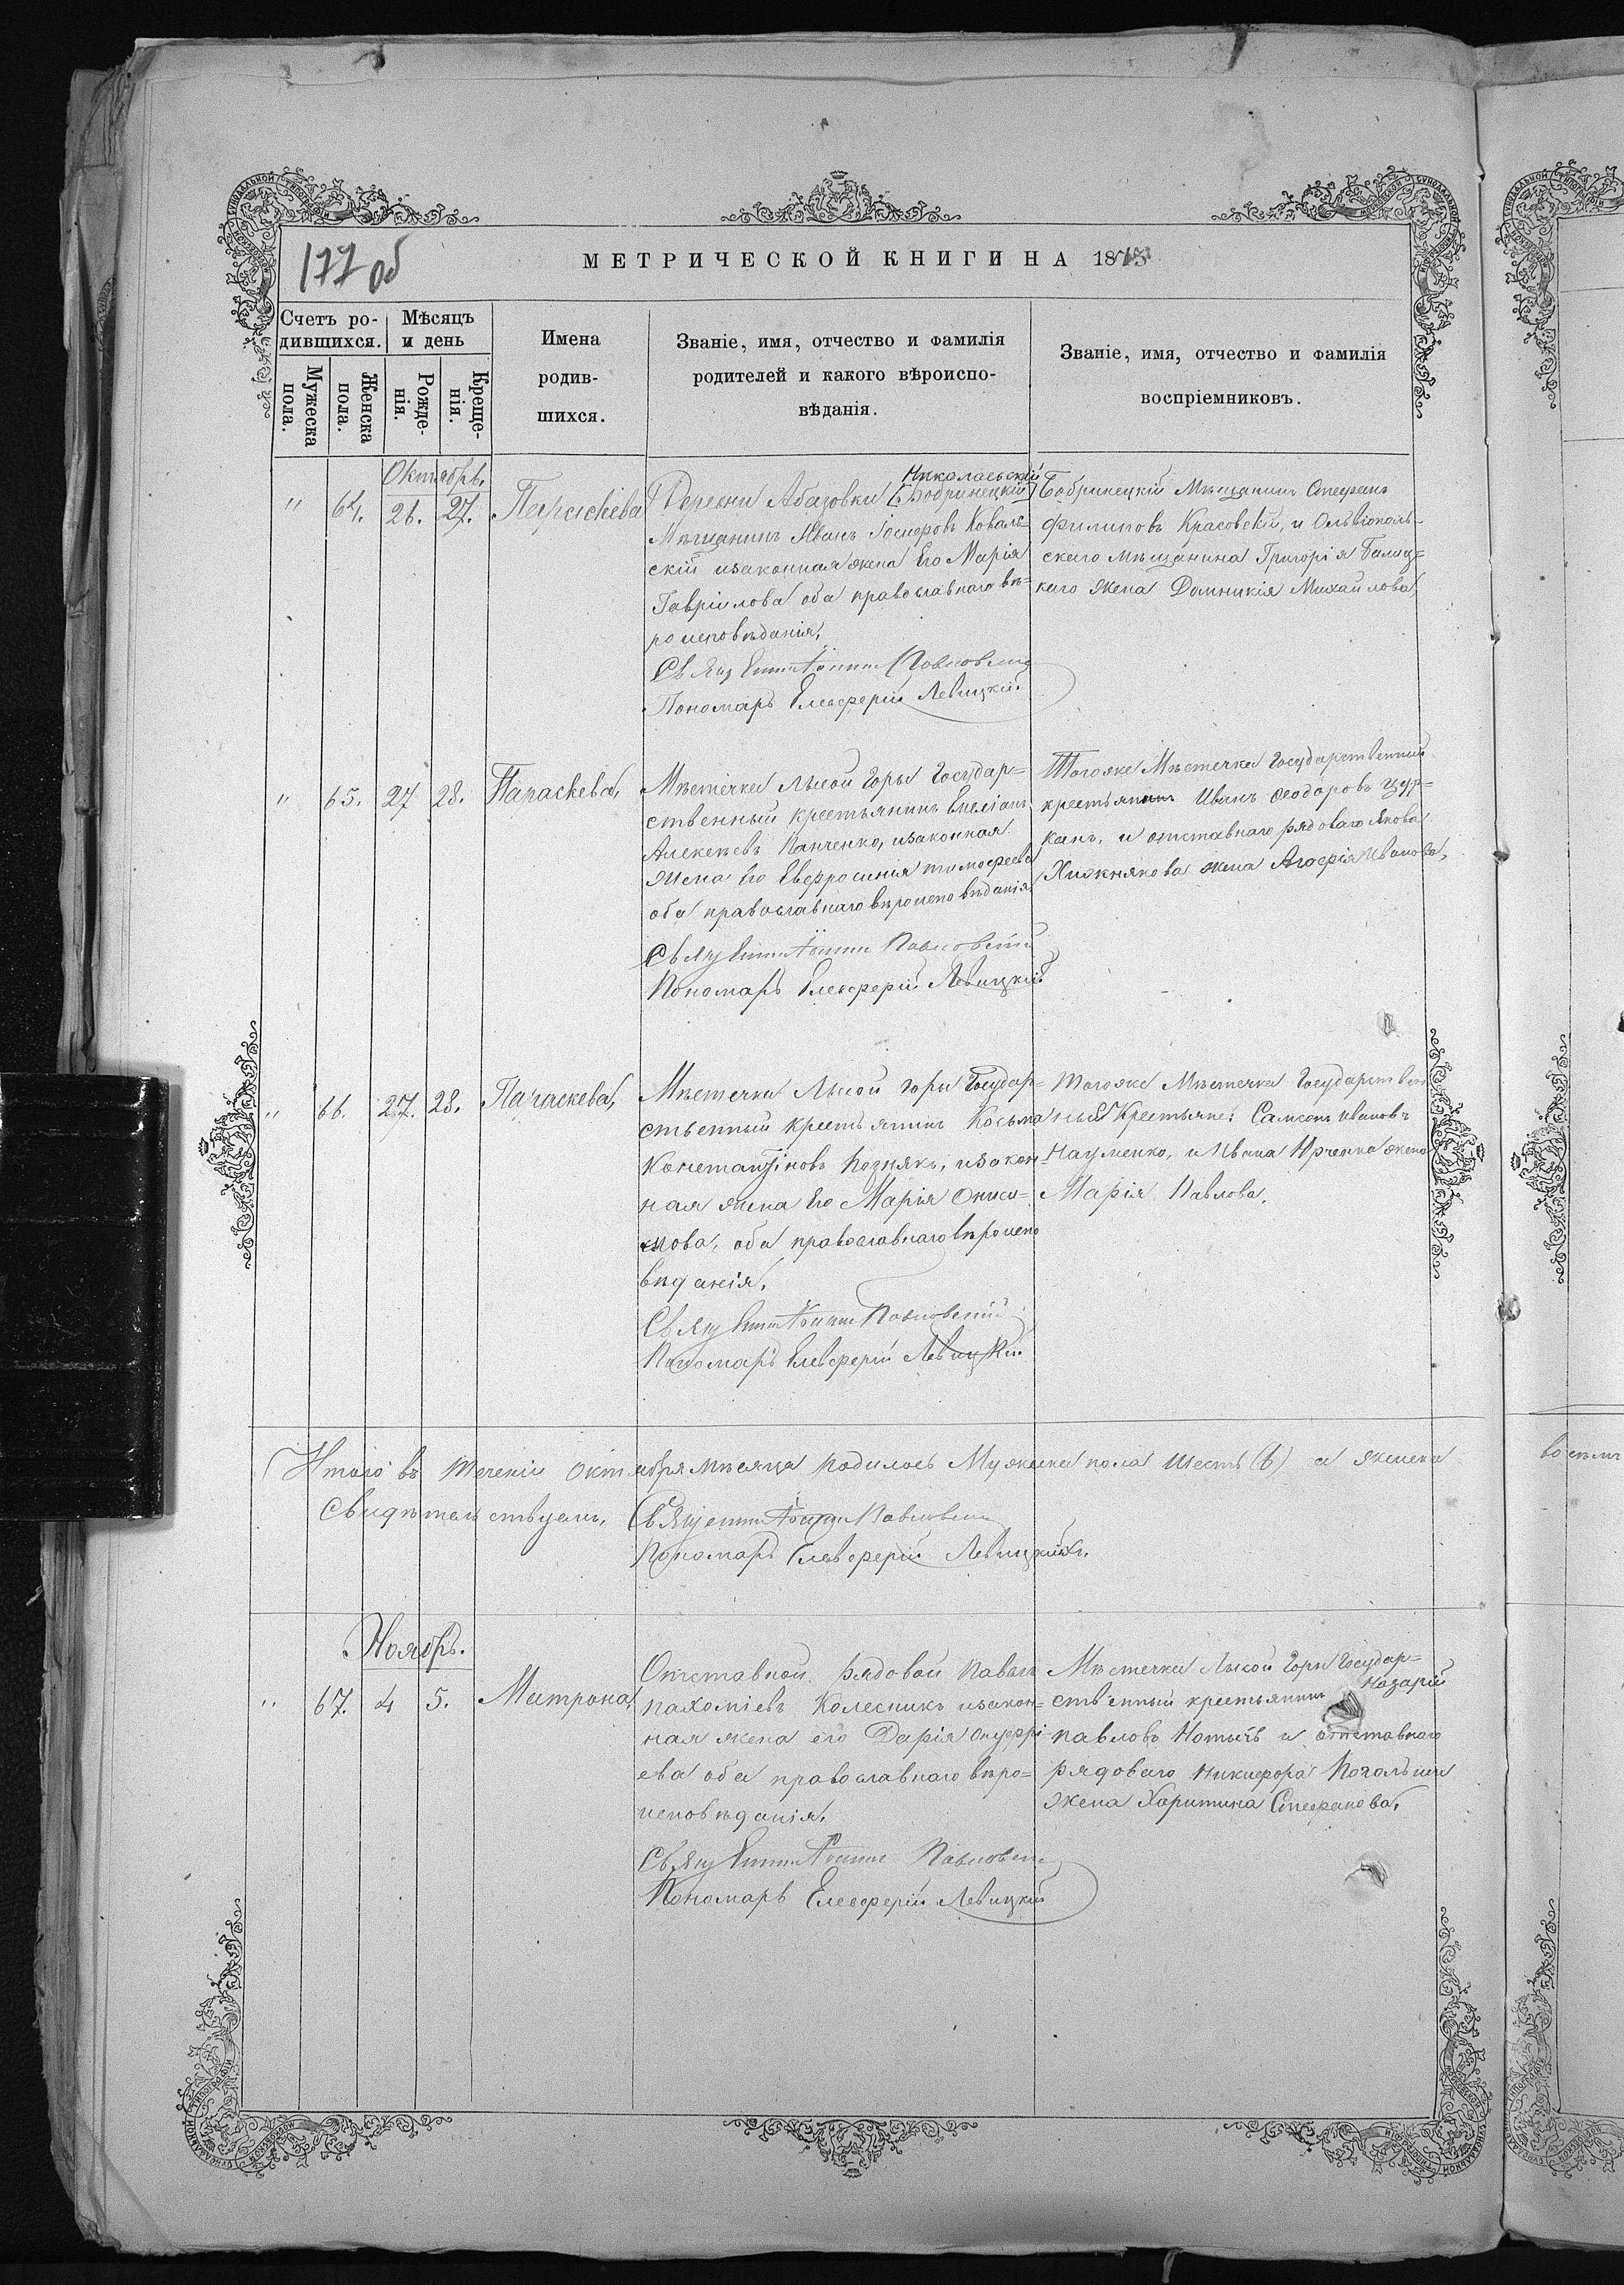 177 об
МЕТРИЧЕСКОЙ КНИГИ НА 1873
Счетъ ро-
дившихся.
Мѣсяцъ
и день
Имена
родив-
шихся.
Званіе, имя, отчество и фамилія
родителей и какого вѣроиспо-
вѣданія.
Званіе, имя, отчество и фамилія
воспріемниковъ.
Мужеска
пола.
Женска
пола.
Рожде-
нія.
Креще-
нія.
Октябрь.
" 64. 26. 27. Параскева
Николаевскій
Деревни Абазовки [Бобринецкій]
Мѣщанинъ Иванъ Іосифовъ Коваль-
скій изаконная жена Его Марія
Гавріилова оба православнаго вѣ-
роисповѣданія,
Священникъ Павловскій
Пономарь Елевферій Левицкій
Бобринецкій Мѣщанинъ Стефанъ
Филиповъ Красовскій, и Ольвіополь-
скаго мѣщанина Григорія Балиц-
каго жена Домникія Михайлова,
" 65. 27 28. Параскева,
Мѣстечка Лысой Горы Государ-
ственный крестьянинъ Емеліанъ
Алексѣевъ Панченко, изаконная
жена Его Евфросинія тимофеева
оба православнаго вѣроисповѣданія
Священникъ Павловскій
Пономарь Елевферій Левицкій
Тогоже Мѣстечка Государственный
крестьянинъ Иванъ Феодоровъ Цур-
канъ, и отставнаго рядоваго Якова
Хижнякова жена Агафія Иванова,
" 66. 27. 28. Параскева,
Мѣстечка Лысой горы Государ-
ственный крестьянинъ Косьма
Константіновъ Познякъ, изакон-
ная жена Его Марія Ониси-
мова, оба православнаго вѣроиспо
вѣданія.
Священникъ Павловскій
Пономарь Елевферій Левицкій
тогоже Мѣстечка Государствен
ный Крестьяне: Самсонъ Ивановъ
Науменко, и Ивана Ярченка жена
Марія Павлова.
Итого въ теченіи октября мѣсяца родилось Мужеска пола шесть (6) а женска
Свидѣтельствуемъ,
Священникъ Павловскій
Пономарь Елевферій Левицкій
восемь
Ноябрь.
" 67. 4 5. Матрона,
Отставной рядовой Павелъ
пахоміевъ Колесникъ изакон-
ная жена его Дарія онуфрі-
ева оба православнаго вѣро-
исповѣданія.
Священникъ Павловскій
Пономарь Елевферій Левицкій
Мѣстечка Лысой Горы Государ-
ственный крестьянинъ Назарій
павловъ и отставнаго
рядоваго Никифора
жена Харитина Стефанова,